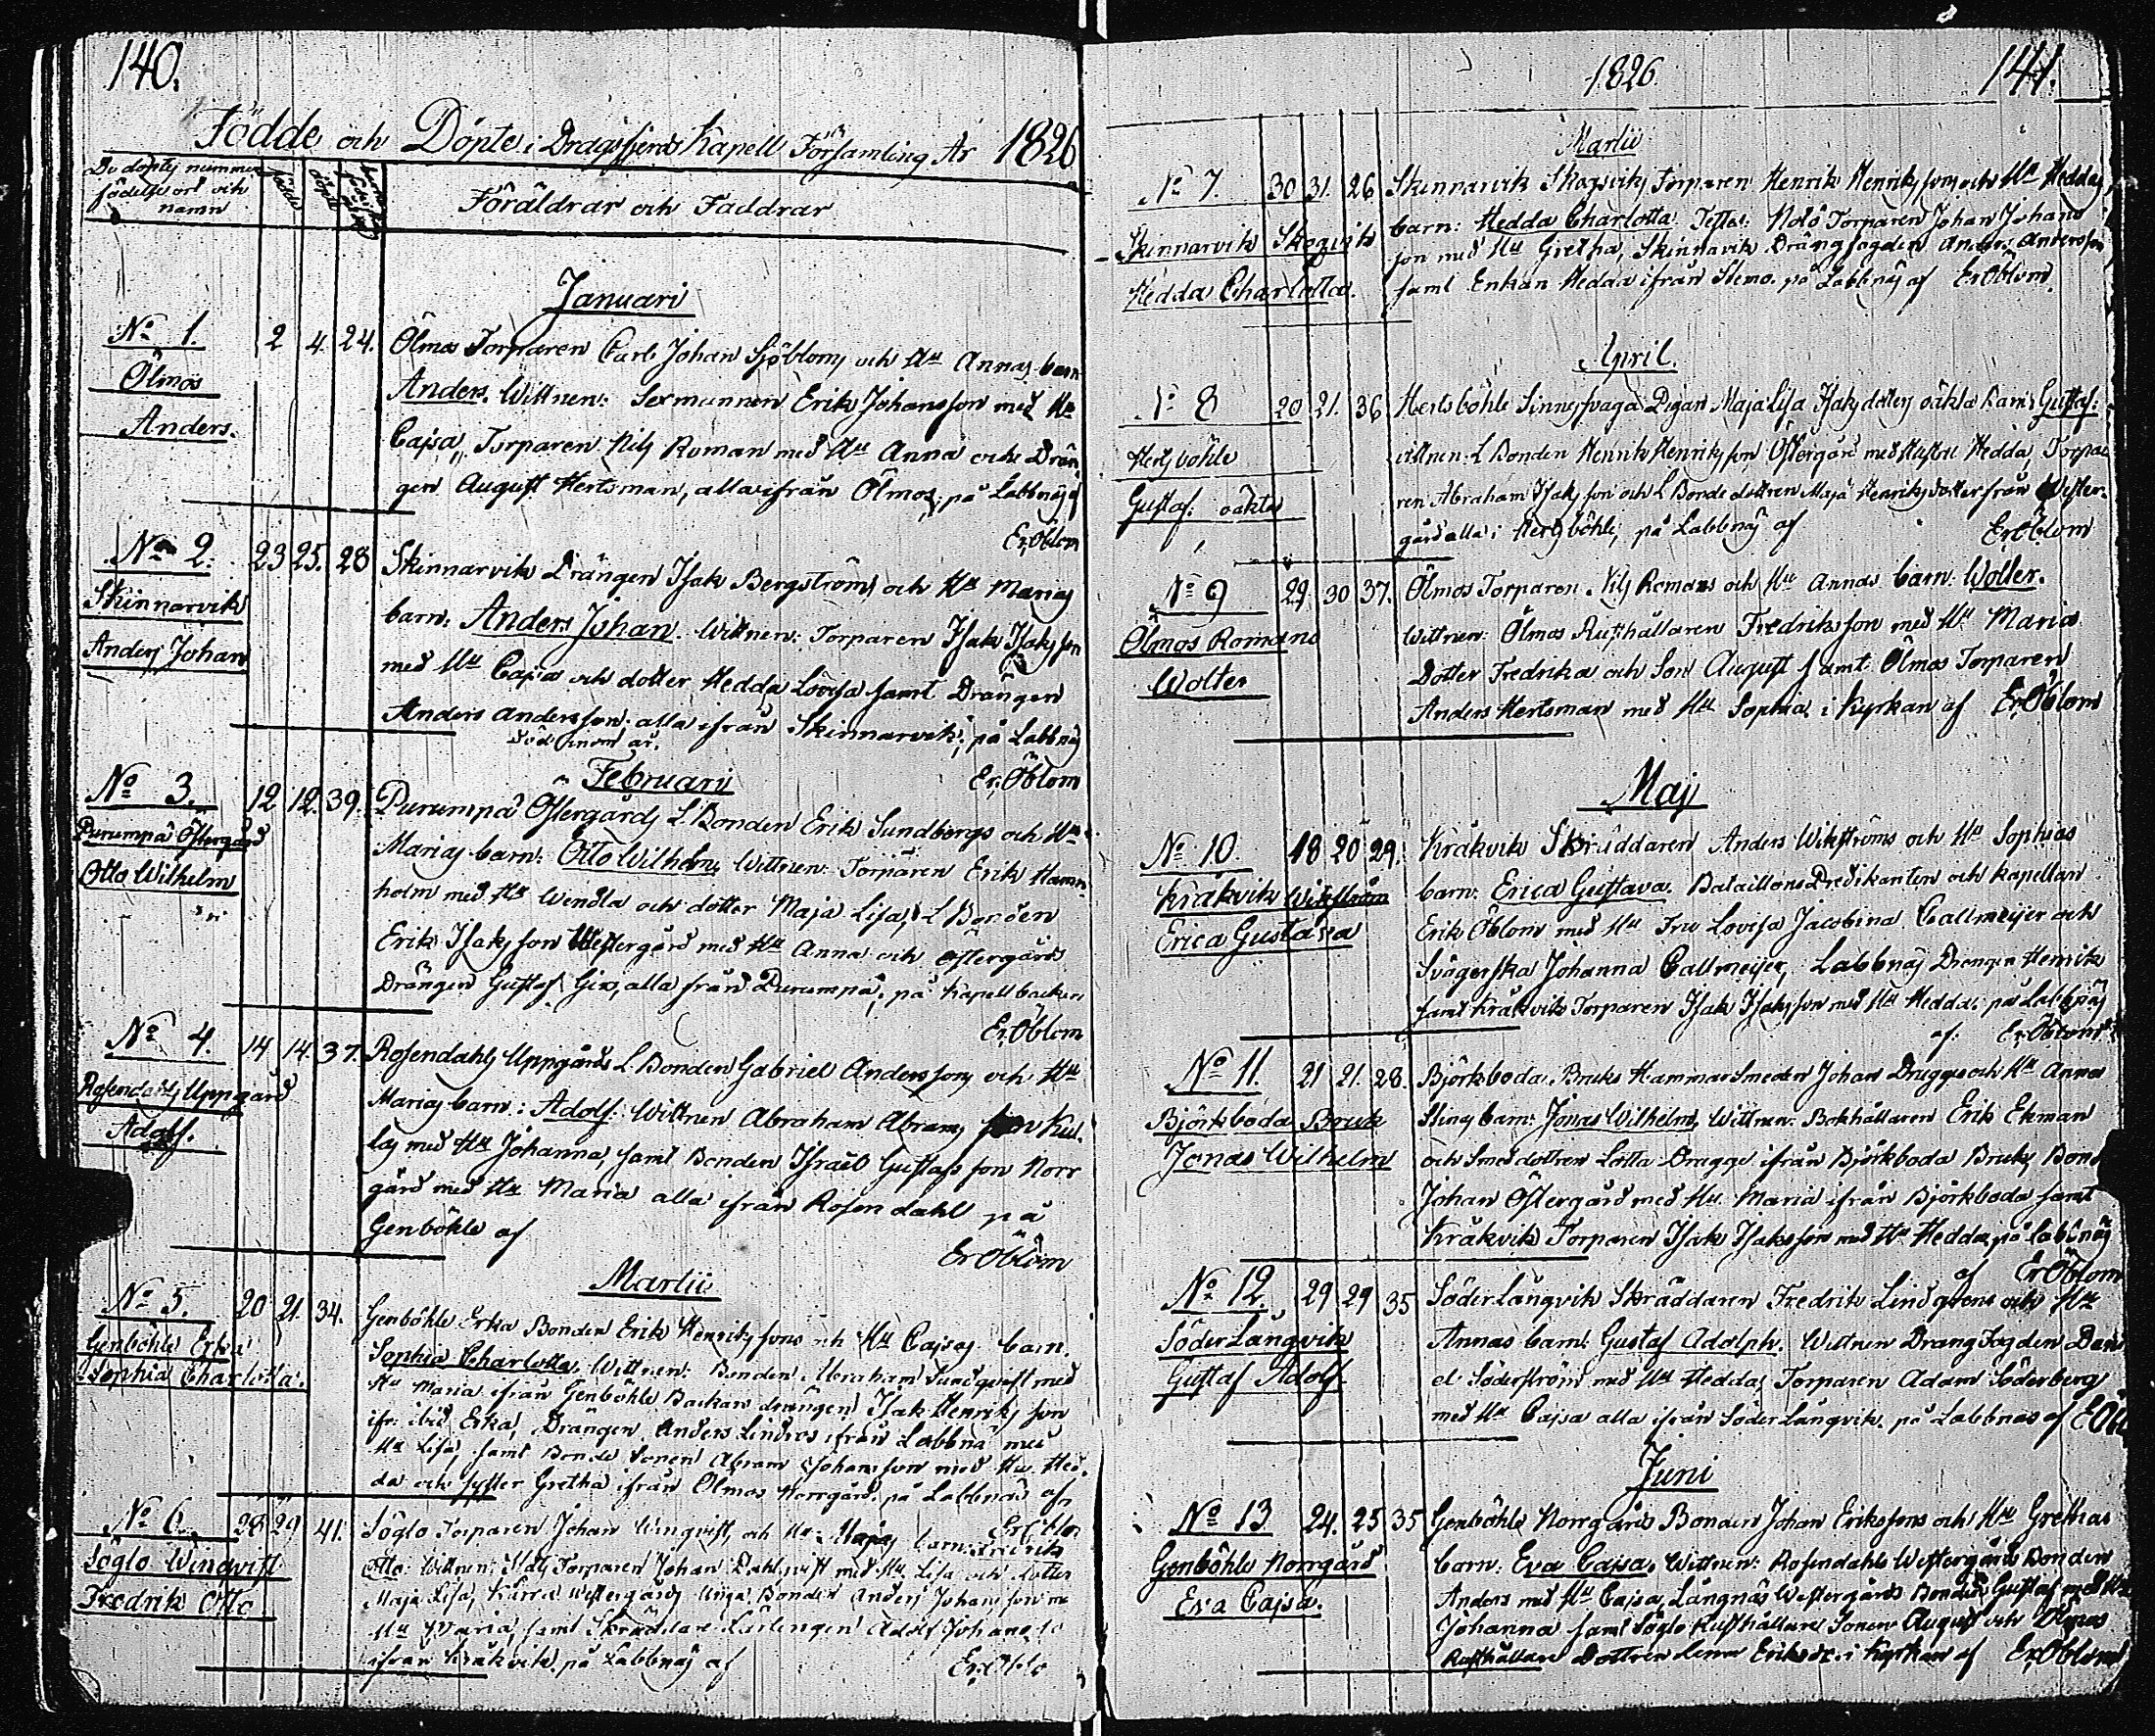 140.
Födde och Döpte i Dragsfjerds Kapell Församling År 1826
De döptes nummer
födelse ort och
namn
födde
döpte
Föräldrar och Faddrar
Januari
No 1. 2 4. 24. Ölmos Torparen Carl Johan Sjöbloms och Hu Annas barn
Ölmos
Anders. Wittnen: Sexmannen Erik Johansson med Hu
Anders.
Cajsa, Torparen Nils Roman med Hu Anna och Drän
gen August Hertsman, alla ifrån Ölmos; på Labbnäs af
Er. Öblom
No 2. 23 25. 28 Skinnarvik Drängen Isak Bergströms och Hu Marias
Skinnarvik
barn: Anders Johan. Wittnen: Torparen Isak Isaksson
Anders Johan
med Hu Cajsa och dotter Hedda Lovisa samt Drängen
Anders Andersson alla ifrån Skinnarvik; på Labbnäs
Er. Öblom
Februari
No 3. 12 12. 39. Purumpå Östergårds L. Bonden Erik Sundbergs och Hu
Purumpå Östergård
Marias barn: Otto Wilhelm, Wittnen: Torparen Erik Hamn
Otto Wilhelm
holm med Hu Wendla och dotter Maja Lisa, L Bonden
Erik Isaksson Westergård med Hu Anna och Östergårds
Drängen Gustaf Gix, alla från Purumpå; på Kapell backen
Er. Öblom
No 4. 14 14. 37. Rosendahls Uppgårds L. Bonden Gabriel Anderssons och Hu
Rosendahls Uppgård
Marias barn: Adolf. Wittnen Abraham Abrams son Kul
Adolf.
las med Hu Johanna, samt Bonden Israel Gustafsson Norr
gård med Hu Maria alla ifrån Rosendahl på
Genböhle af
Er Öblom
Martii
No 5. 20 21. 34. Genböhle Erka Bonden Erik Henrikssons och Hu Cajsas barn.
Genböhle Erka
Sophia Charlotta. Wittnen: Bonden Abraham Sundqvist med
Sophia Charlotta.
Hu Maria ifrån Genböhle Backan drängen Isak Henriksson
ifr. ibid Erka, Drängen Anders Lindros ifrån Labbnä med
Hu Lisa, samt Bonde Sonen Abram Johansson med Hu Hed
da och syster Gretha ifrån Ölmos Norrgård. på Labbnäs af
Er Öblom
No 6. 28 29 41. Söglo Torparen Johan Winqvist, och Hu Majas barn: Fredrik
Söglo Winqvist
Otto: Wittnen: Torparen Johan Dahlqvist med Hu Lisa och dotter
Fredrik Otto
Maja Lisa, Kärra Westergårds Unga Bonden Anders Johansson me
Hu Maria, samt Skräddare Lärlingen Adolf Johans
ifrån Kråkvik. på Labbnäs af
Er. Öblo
1826. 141.
Martii
No 7. 30 31. 26 Skinnarvik Skogsviks Torparen Henrik Henrikssons och Hu Heddas
barn: Hedda Charlotta. Nolö Torparen Johan Johans
Skinnarvik Skogsvik
son med Hu Gretha, Skinnarvik Drängfogden Anders Andersson
Hedda Charlotta.
samt Enkan Hedda ifrån på Labbnäs af Er Öblom.
April.
No 8 20 21. 36 Hertsböhle Sinnesvaga Pigan Maja Lisa Isaksdotters oäkta barn Gustaf:
Hertsböhle
vittnen: L Bonden Henrik Henriksson Östergård med Hustru Hedda, Torpa
Gustaf: oäkta
ren Abraham Isaksson och L Bonde dottren Maja Henriksdotter från Wester
gård alla i Hertsböhle; på Labbnäs af
Er. Öblom
No 9 29. 30 37. Ölmos Torparen Nils Romans och Hu Annas barn: Wolter.
Ölmos Romans
Wittnen: Ölmos Rusthållaren Fredriksson med Hu Maria
Wolter
Dotter Fredrika och Son August samt Ölmos Torparen
Anders Hertsman med Hu Sophia, i Kyrkan af Er. Öblom
Maj
No 10. 18 20 29. Kråkvik Skräddaren Anders Wikströms och Hu Sophias
Kråkvik Wikström
barn: Erica Gustava. Bataillons Predikanten och Kapellan
Erica Gustava
Erik Öblom med Hu Fru Lovisa Jacobina Callmeijer och
Svägerska Johanna Callmeijer, Labbnäs Drengen Henrik
samt Kråkvik Torparen Isak Isaksson med Hu Hedda. på Labbnäs
af. Er Öblom
No 11. 21 21. 28. Björkboda Bruks Hammar Smeden Johan Drugges och Hu Anna
Björkboda Bruk
Stinas barn: Jonas Wilhelm, Wittnen: Bokhållaren Erik Ekman
Jonas Wilhelm
och Smeddottren Lotta Drugge ifrån Björkboda Bruk, Bond
Johan Östergård med Hu. Maria ifrån Björkboda samt
Kråkvik Torparen Isak Isaksson med Hu Hedda, på Labbnäs
af Er Öblom
No 12. 29 29 35 Söder Långvik Skräddaren Fredrik Lindgrens och Hu
Söder Långvik
Annas barn: Gustaf Adolph. Wittnen Dräng Fogden Dani
Gustaf Adolf.
el Söderström med Hu Hedda, Torparen Adam Söderberg
med Hu Cajsa alla ifrån Söder Långvik. på Labbnäs af E Öbl
Juni
No 13 24. 25 35 Genböhle Norrgårds Bonden Johan Erikssons och Hu Grethas
Genböhle Norrgård
barn: Eva Cajsa. Wittnen: Rosendahls Westergårds Bonden
Eva Cajsa.
Anders med Hu Cajsa, Långnäs Westergårds Bonden Gustaf med Hu
Johanna samt Söglo Rusthållare Sonen August och Ölmos
Rusthållare Dottren Lena Eriks dr. i Kyrkan af Er. Öblom